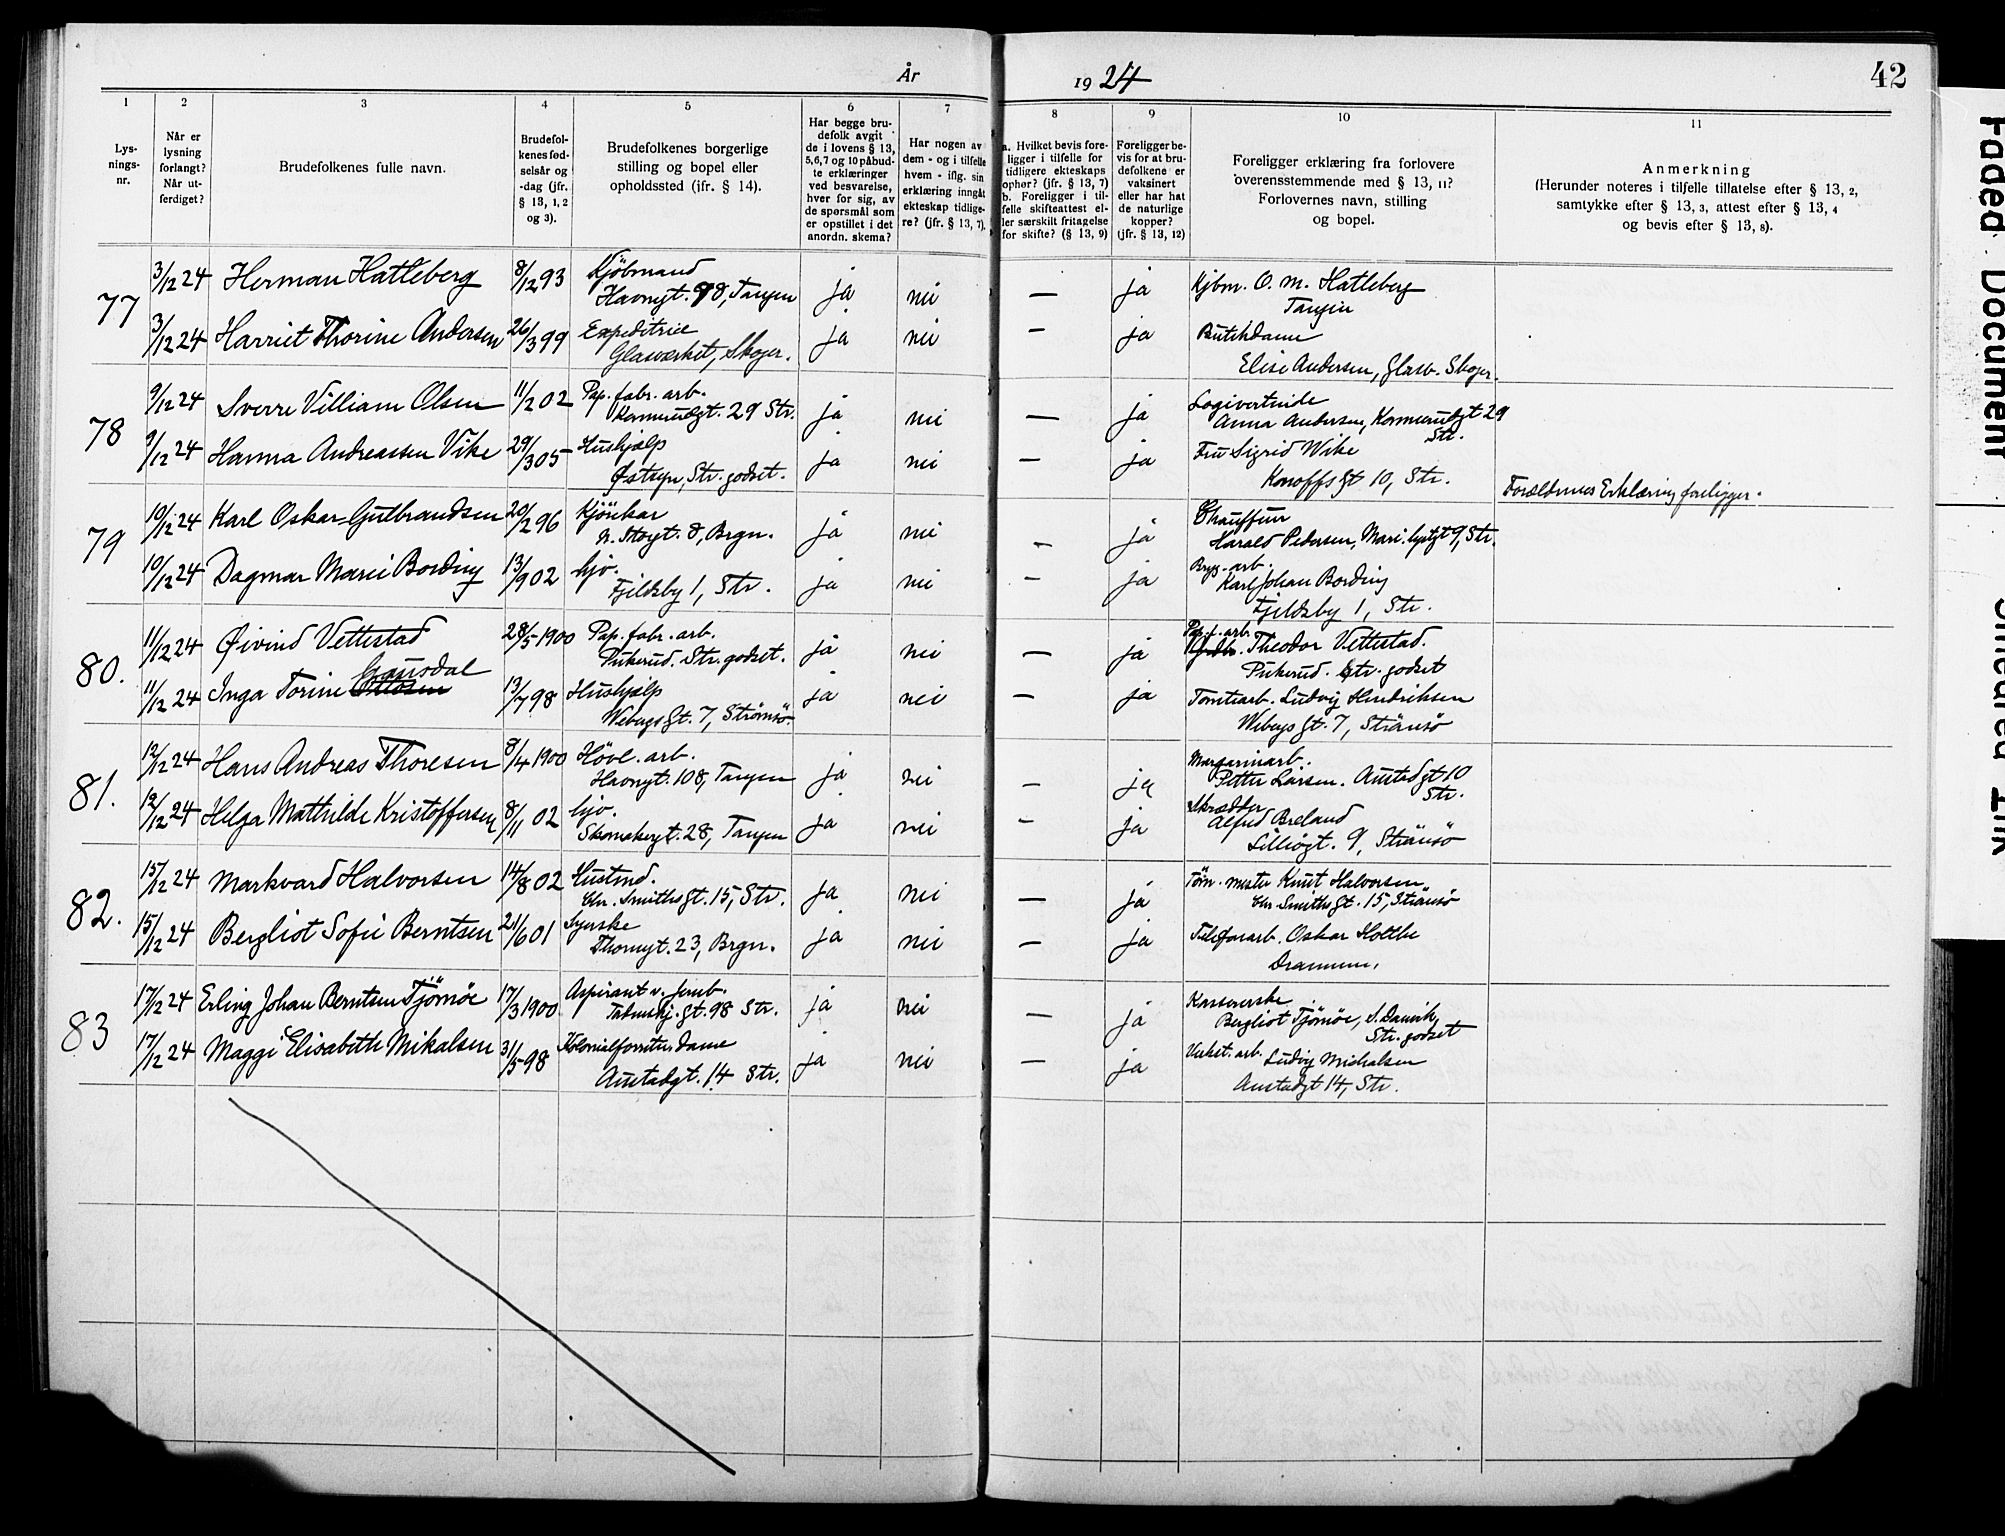 År
19 24
42
1
2
3
4
5
6
7
8
9
10
11
Lys-
nings-
nr.
Når er
lysning
forlangt?
Når ut-
ferdiget?
Brudefolkenes fulle navn.
Brudefol-
kenes fød-
selsår og
-dag (jfr.
§ 13, 1, 2
og 3).
Brudefolkenes borgerlige
stilling og bopel eller
opholdssted (ifr. § 14).
Har begge bru-
defolk avgit
de i lovens § 13,
5,6,7 og 10 påbud-
te erklæringer
ved besvarelse,
hver for sig, av
de spørsmål som
er opstillet i det
anordn. skema?
Har nogen av
dem - og i tilfelle
hvem - iflg. sin
erklæring inngåt
ekteskap tidlige-
re? (jfr. § 13, 7).
a. Hvilket bevis fore-
ligger i tilfelle for
tidligere ekteskaps
ophør? (jfr. § 13, 7)
b. Foreligger i til-
felle skifteattest el-
ler særskilt fritagelse
for skifte? (§ 13, 9)
Foreligger be-
vis for at bru-
defolkene er
vaksinert
eller har hat
de naturlige
kopper?
(jfr. § 13, 12)
Foreligger erklæring fra forlovere
overensstemmende med § 13, 11?
Forlovernes navn, stilling
og bopel.
Anmerkning
(Herunder noteres i tilfelle tillatelse efter § 13, 2,
samtykke efter § 13, 3, attest efter § 13, 4
og bevis efter § 13, 8).
77
3/12 24 Herman Hatleberg 8/12 93 Kjöbmand
Havngt. 98, Tangen ja nei — ja Kjbm. O. M. Hatleberg
Tangen
3/12 24 Harriet Thorine Andersen 26/3 99 Expeditrice
Glasværket, Skoger. ja nei — ja Butikdame
Elise Andersen, Glasv. Skoger.
78
9/12 24 Sverre Villiam Olsen 11/2 02 Pap. fabr. arb.
Konnerudgt. 29 Str. ja nei — ja Logivertinde
Anna Andersen, Konnerudgt 29
Str.
9/12 24 Hanna Andreassen Vike 29/3 05 Hushjælp
Østbyn, Str. godset. ja nei — ja Fru Sigrid Wike
Konoffs gt 10, Str.
Forældrenes Erklæring foreligger.
79
10/12 24 Karl Oskar Gulbrandsen 20/2 96 Kjörekar
N. Storgt. 8, Brgn. ja nei — ja Chauffeur
Harald Pedersen, Mari. lystgt 9, Str.
10/12 24 Dagmar Marie Bording 13/9 02 hjv.
Fjeldsby 1, Str. ja nei — ja Bryg. arb.
Karl Johan Bording
Fjeldsby 1, Str.
80.
11/12 24 Øivind Vettestad 28/5 1900 Pap. fabr. arb.
Pukerud. Str. godset. ja nei — ja Pap. f. arb.
Theodor Vettestad.
Pukerud. Str. godset
Gausdal
11/12 24 Inga Torine Ottosen 13/7 98 Hushjælp
Webergs gt. 7, Strömsö. ja nei — ja Tomtearb. Ludvig Hendriksen
Webergs gt. 7, Strömsö
81.
12/12 24 Hans Andreas Thoresen 8/4 1900 Hövl. arb.
Havngt. 108, Tangen ja nei — ja Margarinarb.
Petter Larsen. Austadgt 10
Str.
12/12 24 Helga Mathilde Kristoffersen 8/11 02 hjv.
Skomakergt. 28, Tangen ja nei — ja Skrædder
Alfred Breland
Lilliögt. 9, Strömsö
82.
15/12 24 Markvard Halvorsen 14/8 02 Hustmd.
Chr. Smiths gt. 15, Str. ja nei — ja Töm. mester Knut Halvorsen
Chr Smiths gt. 15, Strömsö
15/12 24 Bergliot Sofie Berntsen 21/6 01 Syerske
Thornegt. 23, Brgn. ja nei — ja Telefonarb. Oskar Holtbe
Drammen.
83
17/12 24 Erling Johan Berntsen Tjömöe 17/3 1900 Aspirant v. Jernb.
gt. 98 Str. ja nei — ja Kassererske
Bergliot Tjömöe, S. Danvik,
Str. godset
17/12 24 Maggi Elisabeth Mikalsen 31/5 98 Kolonialforretn. dame
Austadgt. 14 Str. ja nei — ja Verkst. arb. Ludvig Michalsen
Austadgt 14, Str.
Faded Document
Smeared Ink